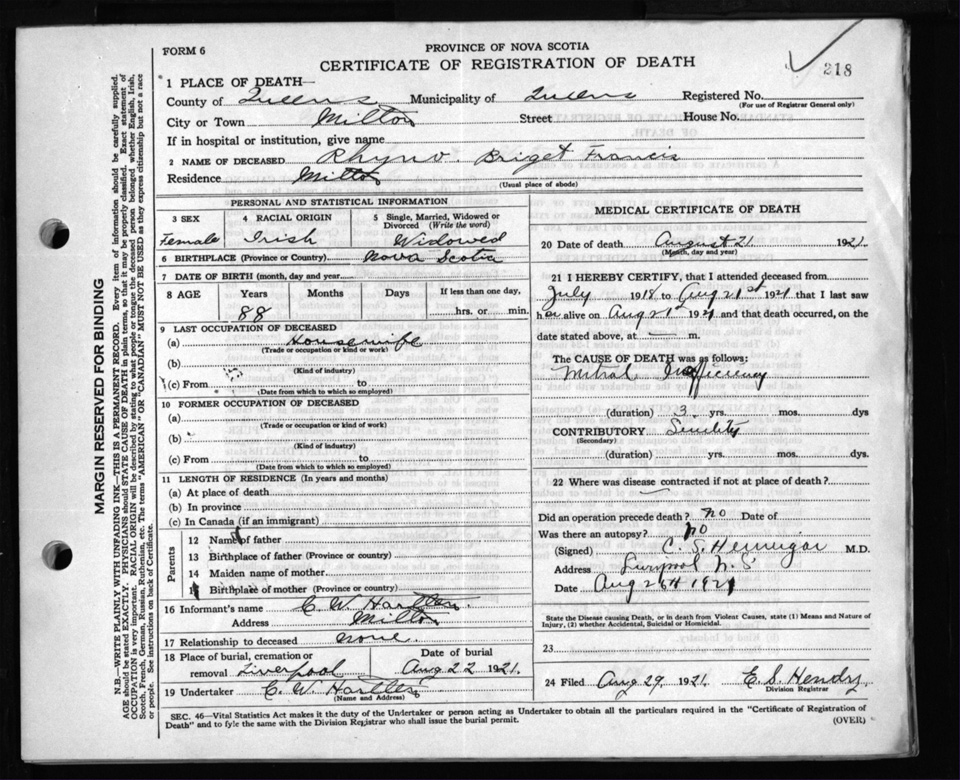 FORM 6
PROVINCE OF NOVA SCOTIA
CERTIFICATE OF REGISTRATION OF DEATH
218
1 PLACE OF DEATH—
County of Queens Municipality of Queens Registered No.
(For use of Registrar General only)
City or Town Milton Street House No.
If in hospital or institution, give name
2 NAME OF DECEASED Rhyno. Briget Francis
Residence Milton
(Usual place of abode)
PERSONAL AND STATISTICAL INFORMATION
3 SEX 4 RACIAL ORIGIN 5 Single, Married, Widowed or Divorced (Write the word)
Female Irish Widowed
6 BIRTHPLACE (Province or Country) Nova Scotia
7 DATE OF BIRTH (month, day and year)
8 AGE Years Months Days If less than one day,
88 hrs. or min.
9 LAST OCCUPATION OF DECEASED
(a) Housewife
(Trade or occupation or kind of work)
(b)
(Kind of industry)
(c) From to
(Date from which to which so employed)
10 FORMER OCCUPATION OF DECEASED
(a)
(Trade or occupation or kind of work)
(b)
(Kind of industry)
(c) From to
(Date from which to which so employed)
11 LENGTH OF RESIDENCE (In years and months)
(a) At place of death
(b) In province
(c) In Canada (if an immigrant)
Parents
12 Name of father
13 Birthplace of father (Province or country)
14 Maiden name of mother
15 Birthplace of mother (Province or country)
16 Informant's name C. W. Hartlen
Address Milton
17 Relationship to deceased none
18 Place of burial, cremation or removal Liverpool Date of burial Aug 22 1921.
19 Undertaker C. W. Hartlen
(Name and Address)
MEDICAL CERTIFICATE OF DEATH
20 Date of death August 21 1921.
(Month, day and year)
21 I HEREBY CERTIFY, that I attended deceased from
July 1918 to Aug 21st 1921 that I last saw
her alive on Aug 21st 1921 and that death occurred, on the
date stated above, at m.
The CAUSE OF DEATH was as follows:
Mitral Insufficiency
(duration) 3 yrs. mos. dys
CONTRIBUTORY Senility
(Secondary)
(duration) yrs. mos. dys.
22 Where was disease contracted if not at place of death?
Did an operation precede death? no Date of
Was there an autopsy? no
(Signed) C. S. Hennigar M.D.
Address Liverpool N.S
Date Aug 26th 1921
State the Disease causing Death, or in death from Violent Causes, state (1) Means and Nature of Injury, (2) whether Accidental, Suicidal or Homicidal.
23
24 Filed Aug 29 1921. E. S. Hendry
Division Registrar
SEC. 46—Vital Statistics Act makes it the duty of the Undertaker or person acting as Undertaker to obtain all the particulars required in the "Certificate of Registration of
Death" and to fyle the same with the Division Registrar who shall issue the burial permit.
(OVER)
MARGIN RESERVED FOR BINDING
N.B.—WRITE PLAINLY WITH UNFADING INK—THIS IS A PERMANENT RECORD. Every item of information should be carefully supplied.
AGE should be stated EXACTLY. PHYSICIANS should STATE CAUSE OF DEATH in plain terms, so that it may be properly classified. Exact statement of
OCCUPATION is very important. RACIAL ORIGIN will be described by stating to what people or tongue the deceased person belonged, whether English, Irish,
Scotch, French, German, Russian, Ruthenian, etc. The terms "AMERICAN" OR "CANADIAN" MUST NOT BE USED as they express citizenship but not a race
or people. See instructions on back of Certificate.